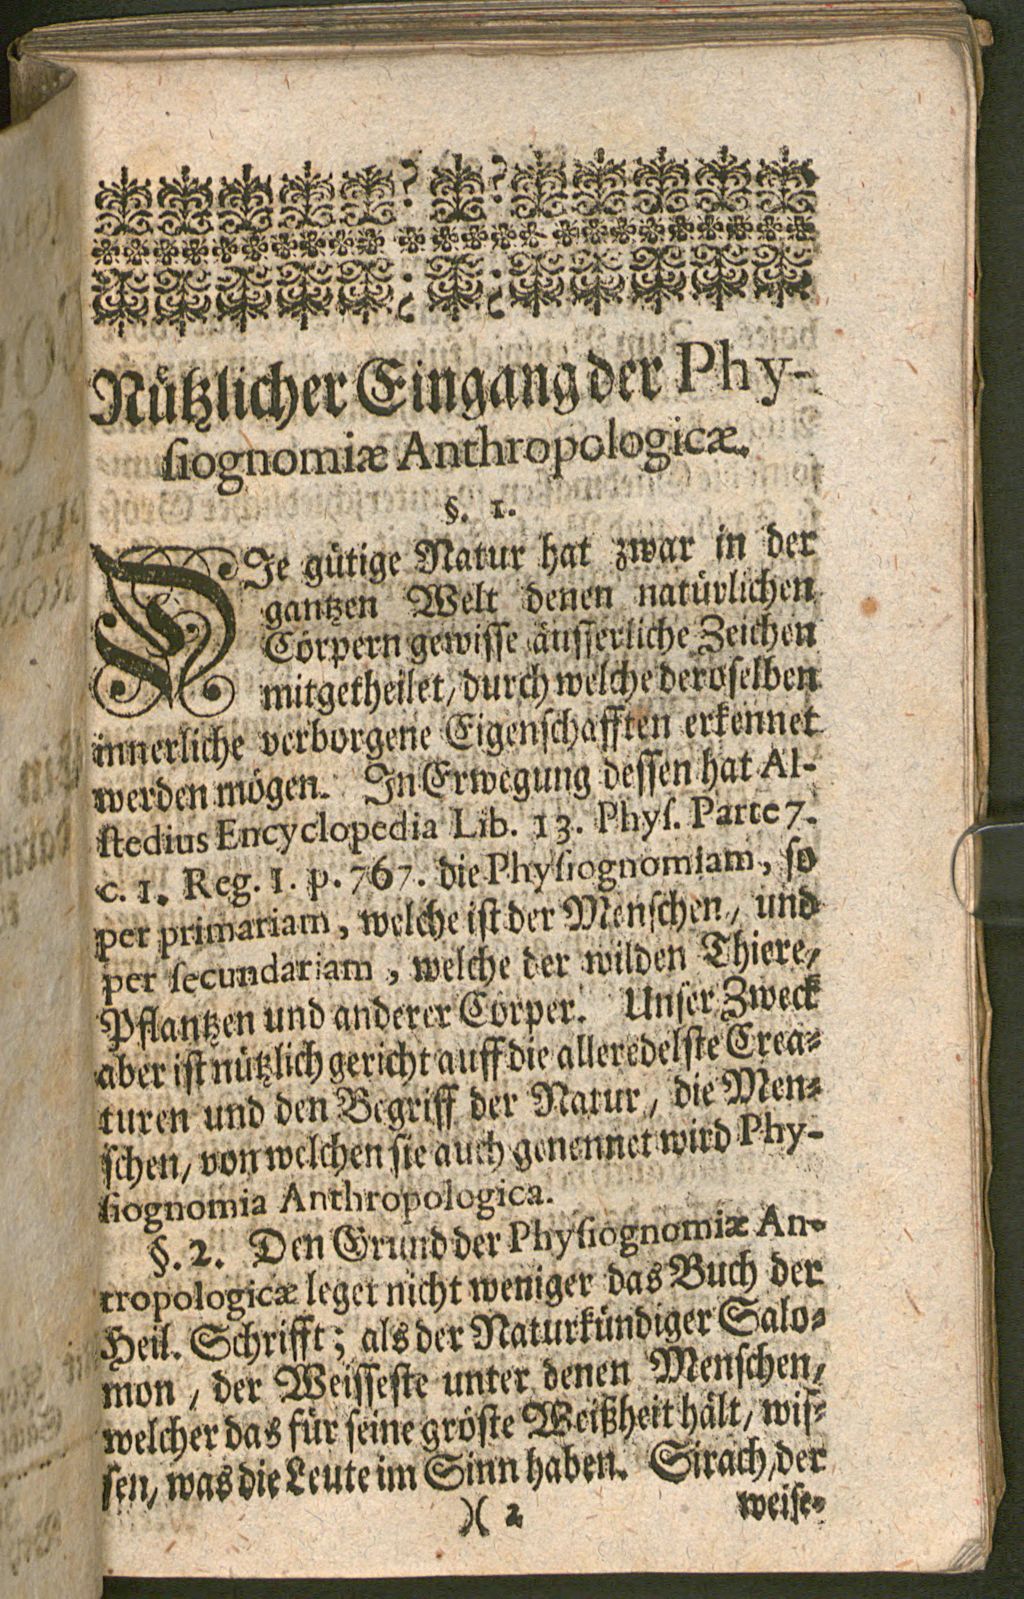 Nützlicher Eingang der Phy-
siognomiæ Anthropologicæ.
§. 1.
DIe gütige Natur hat zwar in der
gantzen Welt denen natürlichen
Cörpern gewisse äusserliche Zeichen
mitgetheilet, durch welche deroselben
innerliche verborgene Eigenschafften erkennet
werden mögen. In Erwegung dessen hat Al-
stedius Encyclopedia Lib. 13. Phys. Parte 7.
c. 1. Reg. 1. p. 767. die Physiognomiam, so
per primariam, welche ist der Menschen, und
per secundariam, welche der wilden Thiere,
Pflantzen und anderer Cörper. Unser Zweck
aber ist nützlich gericht auff die alleredelste Crea-
turen und den Begriff der Natur, die Men-
schen, von welchen sie auch genennet wird Phy-
siognomia Anthropologica.
§. 2. Den Grund der Physiognomiæ An-
tropologicæ leget nicht weniger das Buch der
Heil. Schrifft; als der Naturkündiger Salo-
mon, der Weisseste unter denen Menschen,
welcher das für seine gröste Weißheit hält, wis-
sen, was die Leute im Sinn haben. Sirach, der
)( 2 weise-